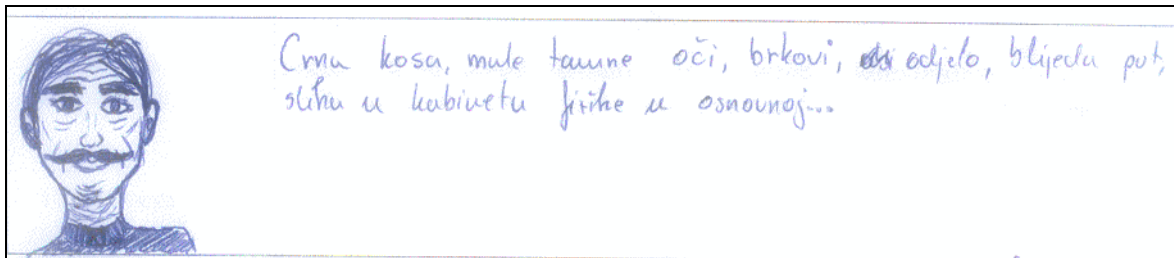 Crna kosa, male tamne oči, brkovi, odjelo, blijeda put,
slika u kabinetu fizike u osnovnoj...